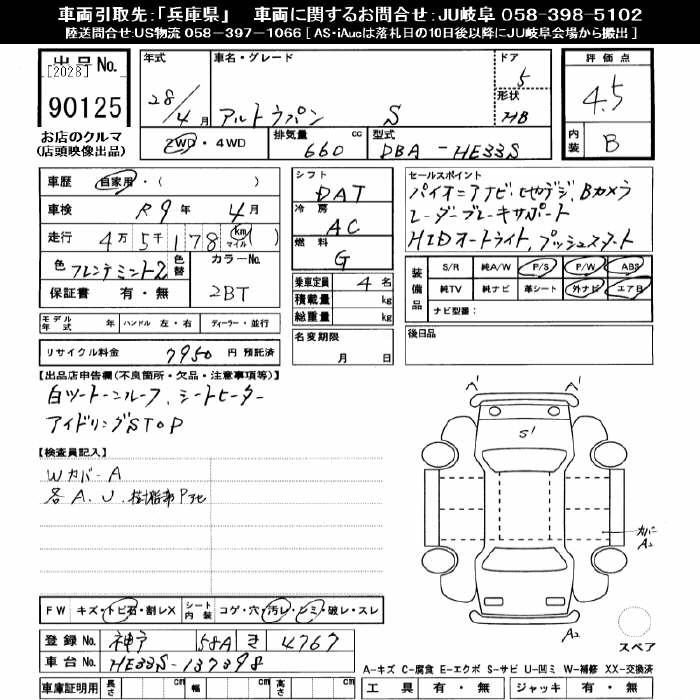 車両引取先:「兵庫県」 車両に関するお問合せ:JU岐阜 058-398-5102
陸送問合せ:US物流 058-397-1066 [ AS・iAucは落札日の10日後以降にJU岐阜会場から搬出 ]
出品No.
[2028]
90125
お店のクルマ
(店頭映像出品)
年式 28/4月
車名・グレード アルトラパン S
ドア 5
形状 HB
2WD・4WD
排気量 660 cc
型式 DBA-HE33S
評価点 4.5
内装 B
車歴 自家用・( )
車検 R9年 4月
走行 4万5千178 km マイル( )
色 フレンチミント2 色替
カラーNo. 2BT
保証書 有・無
モデル年式 年 ハンドル 左・右 ディーラー・並行
リサイクル料金 7950 円 預託済
シフト DAT
冷房 AC
燃料 G
乗車定員 4名
積載量 kg
総重量 kg
名変期限 月 日
セールスポイント
パイオニアナビ・地デジ、Bカメラ
レーダーブレーキサポート
HIDオートライト、プッシュスタート
装備品
S/R 純A/W P/S P/W ABS
純TV 純ナビ 革シート 外ナビ エアB
ナビ型番:
後日品
【出品店申告欄(不良箇所・欠品・注意事項等)】
白ツートーンルーフ、シートヒーター
アイドリングSTOP
【検査員記入】
Wカバー A
各A、U、樹脂部Pアセ
A' A'
S'
カバーA2
A2
スペア
FW キズ・トビ石・割レX
シート内装 コゲ・穴・汚レ・シミ・破レ・スレ
登録No. 神戸 581A き 4767
車台No. HE33S-137398
車庫証明用 長さ cm 幅 cm 高さ cm
A-キズ C-腐食 E-エクボ S-サビ U-凹ミ W-補修 XX-交換済
工具 有・無 ジャッキ 有・無